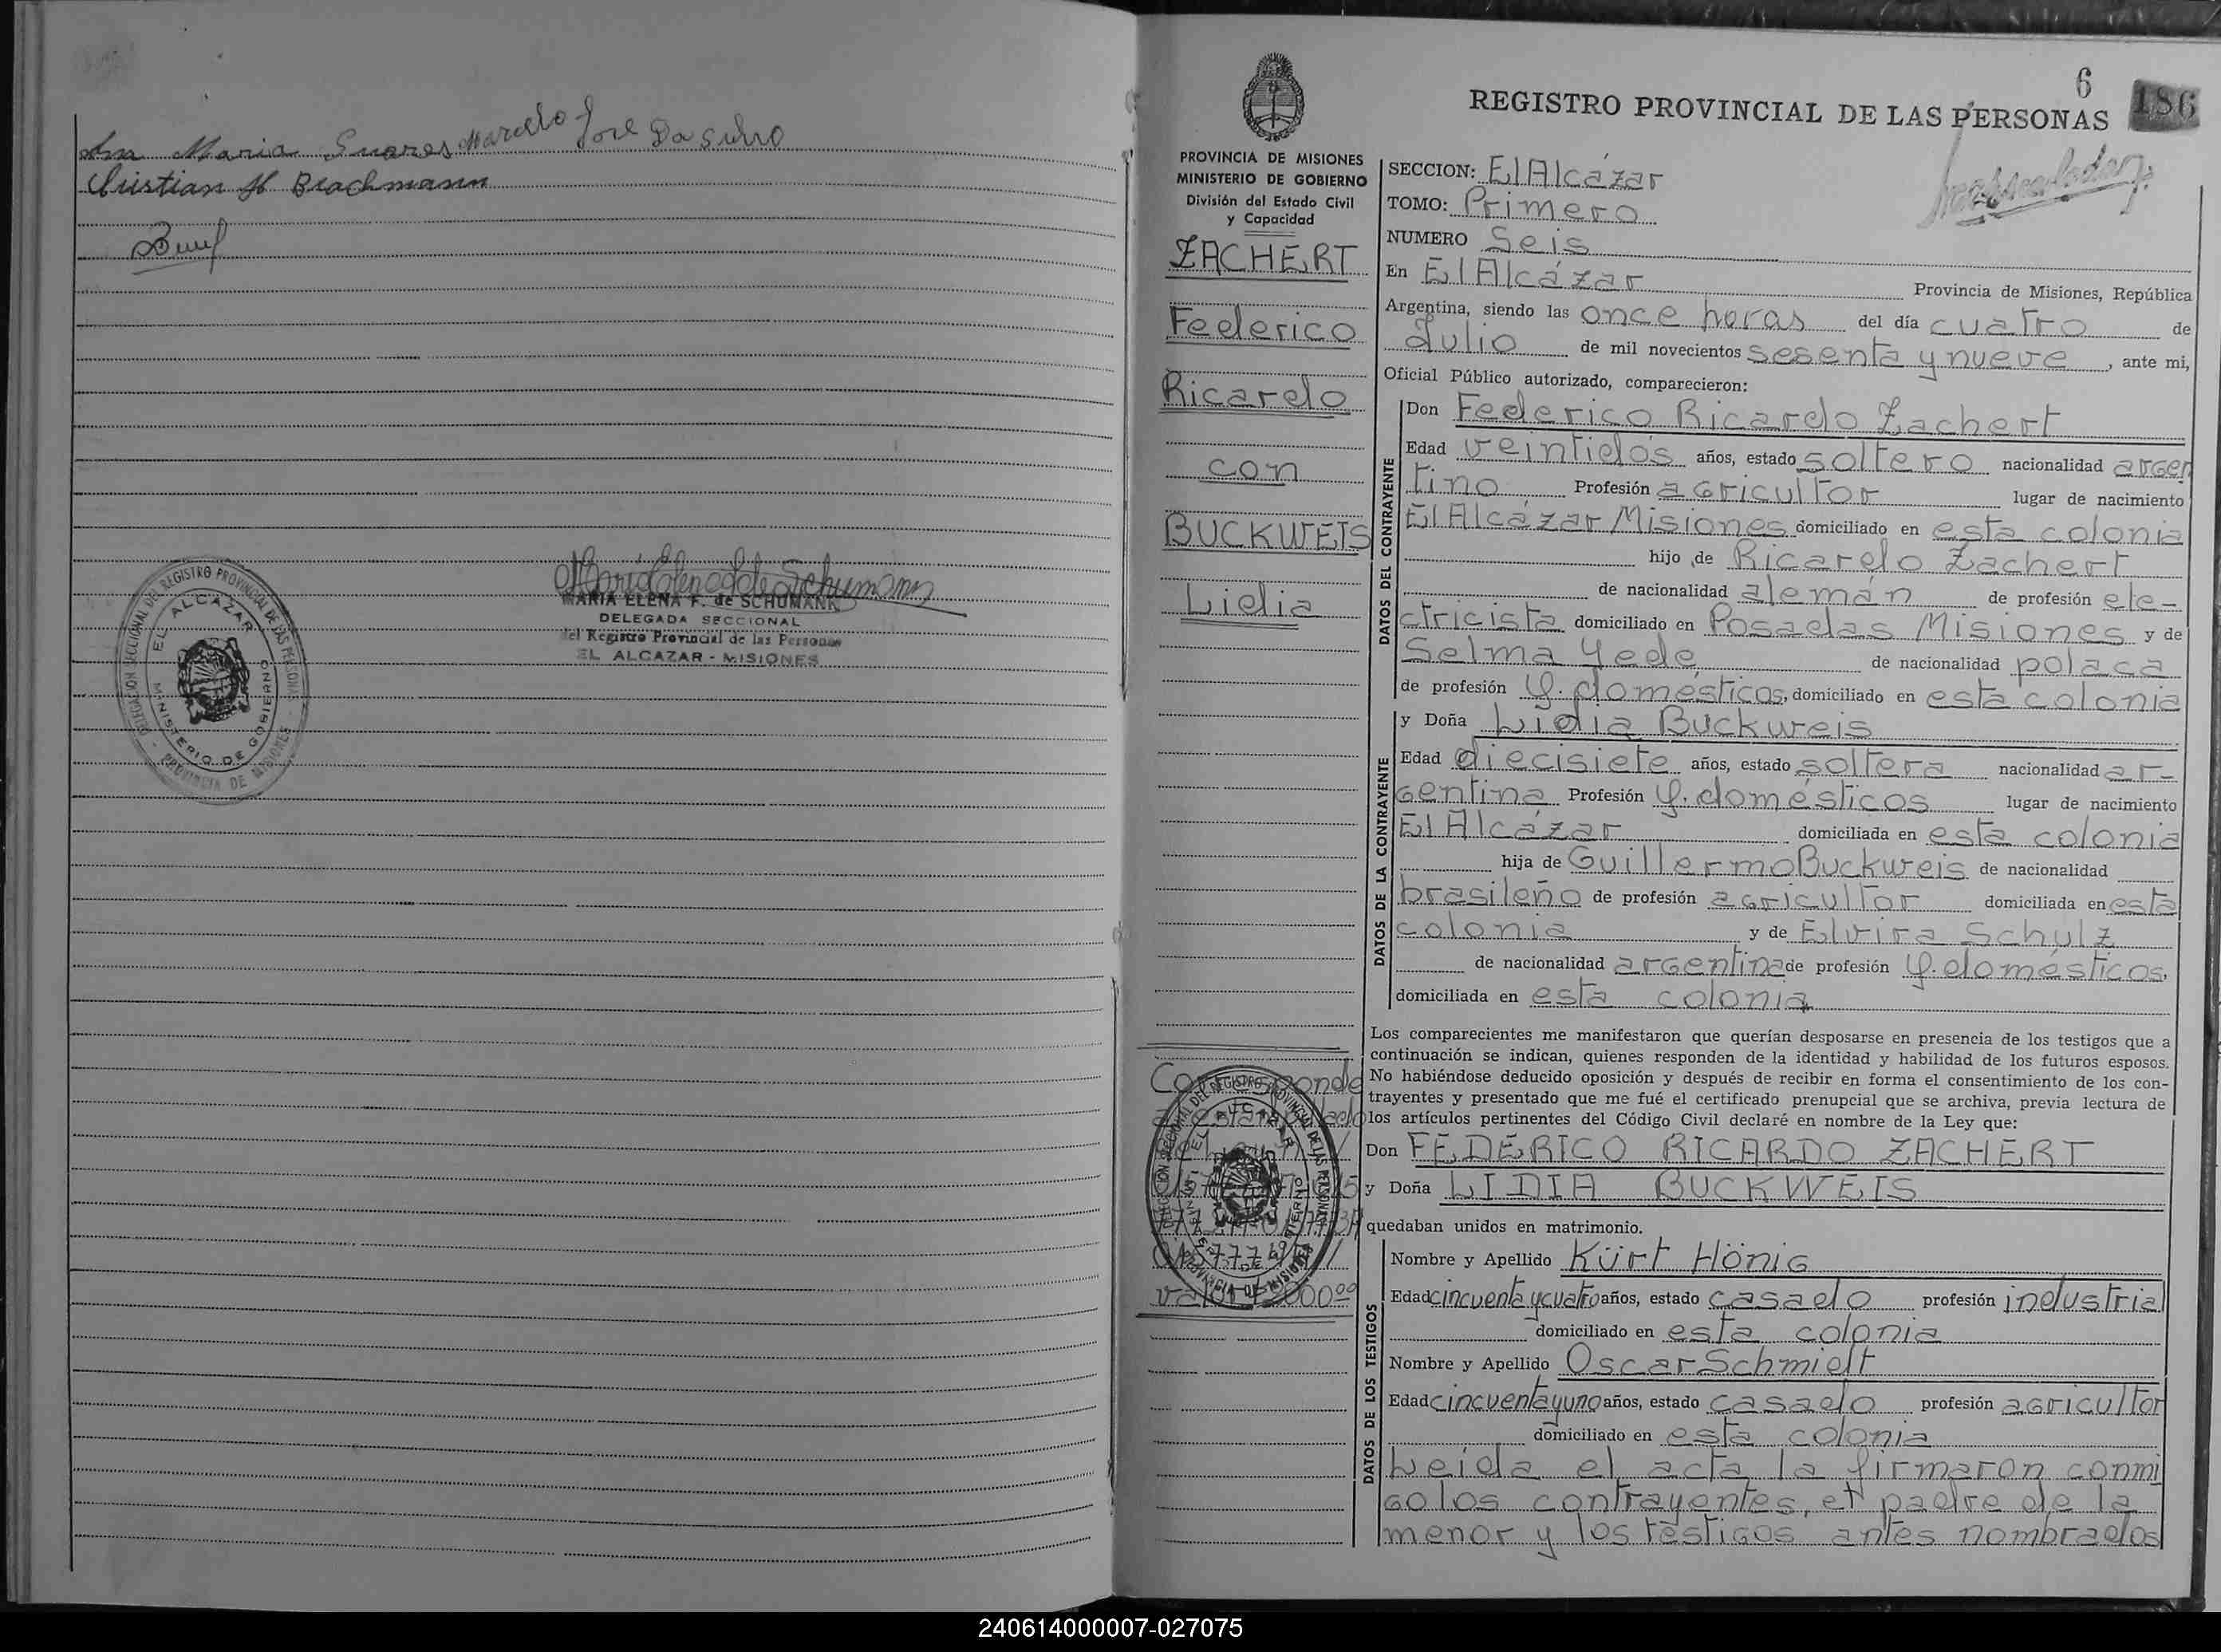 Ana Maria Suares Marcelo José Da Silva
Cristian H Brachmann
MARIA ELENA F. de SCHUMANN
DELEGADA SECCIONAL
del Registro Provincial de las Personas
EL ALCAZAR - MISIONES
DELEGACION SECCIONAL DEL REGISTRO PROVINCIAL DE LAS PERSONAS
EL ALCAZAR
MINISTERIO DE GOBIERNO
PROVINCIA DE MISIONES
6
186
REGISTRO PROVINCIAL DE LAS PERSONAS
PROVINCIA DE MISIONES
MINISTERIO DE GOBIERNO
División del Estado Civil
y Capacidad
ZACHERT
Federico
Ricardo
con
BUCKWEIS
Lidia
SECCION: El Alcázar
TOMO: Primero
NUMERO Seis
En El Alcázar Provincia de Misiones, República
Argentina, siendo las once horas del día cuatro de
Julio de mil novecientos sesenta y nueve, ante mi,
Oficial Público autorizado, comparecieron:
DATOS DEL CONTRAYENTE
Don Federico Ricardo Zachert
Edad veintidós años, estado soltero nacionalidad argen
tino Profesión agricultor lugar de nacimiento
El Alcázar Misiones domiciliado en esta colonia
hijo de Ricardo Zachert
de nacionalidad alemán de profesión ele-
ctricista domiciliado en Posadas Misiones y de
Selma Yede de nacionalidad polaca
de profesión q. domésticos, domiciliado en esta colonia
DATOS DE LA CONTRAYENTE
y Doña Lidia Buckweis
Edad diecisiete años, estado soltera nacionalidad ar-
gentina Profesión q. domésticos lugar de nacimiento
El Alcázar domiciliada en esta colonia
hija de Guillermo Buckweis de nacionalidad
brasileño de profesión agricultor domiciliada en esta
colonia y de Elvira Schulz
de nacionalidad argentina de profesión q. domésticos,
domiciliada en esta colonia
Los comparecientes me manifestaron que querían desposarse en presencia de los testigos que a
continuación se indican, quienes responden de la identidad y habilidad de los futuros esposos.
No habiéndose deducido oposición y después de recibir en forma el consentimiento de los con-
trayentes y presentado que me fué el certificado prenupcial que se archiva, previa lectura de
los artículos pertinentes del Código Civil declaré en nombre de la Ley que:
Don FEDERICO RICARDO ZACHERT
y Doña LIDIA BUCKWEIS
quedaban unidos en matrimonio.
DATOS DE LOS TESTIGOS
Nombre y Apellido Kürt Hönig
Edad cincuenta y cuatro años, estado casado profesión industrial
domiciliado en esta colonia
Nombre y Apellido Oscar Schmidt
Edad cincuenta y uno años, estado casado profesión agricultor
domiciliado en esta colonia
Leida el acta la firmaron conmi
go los contrayentes, el padre de la
menor y los testigos antes nombrados
240614000007-027075